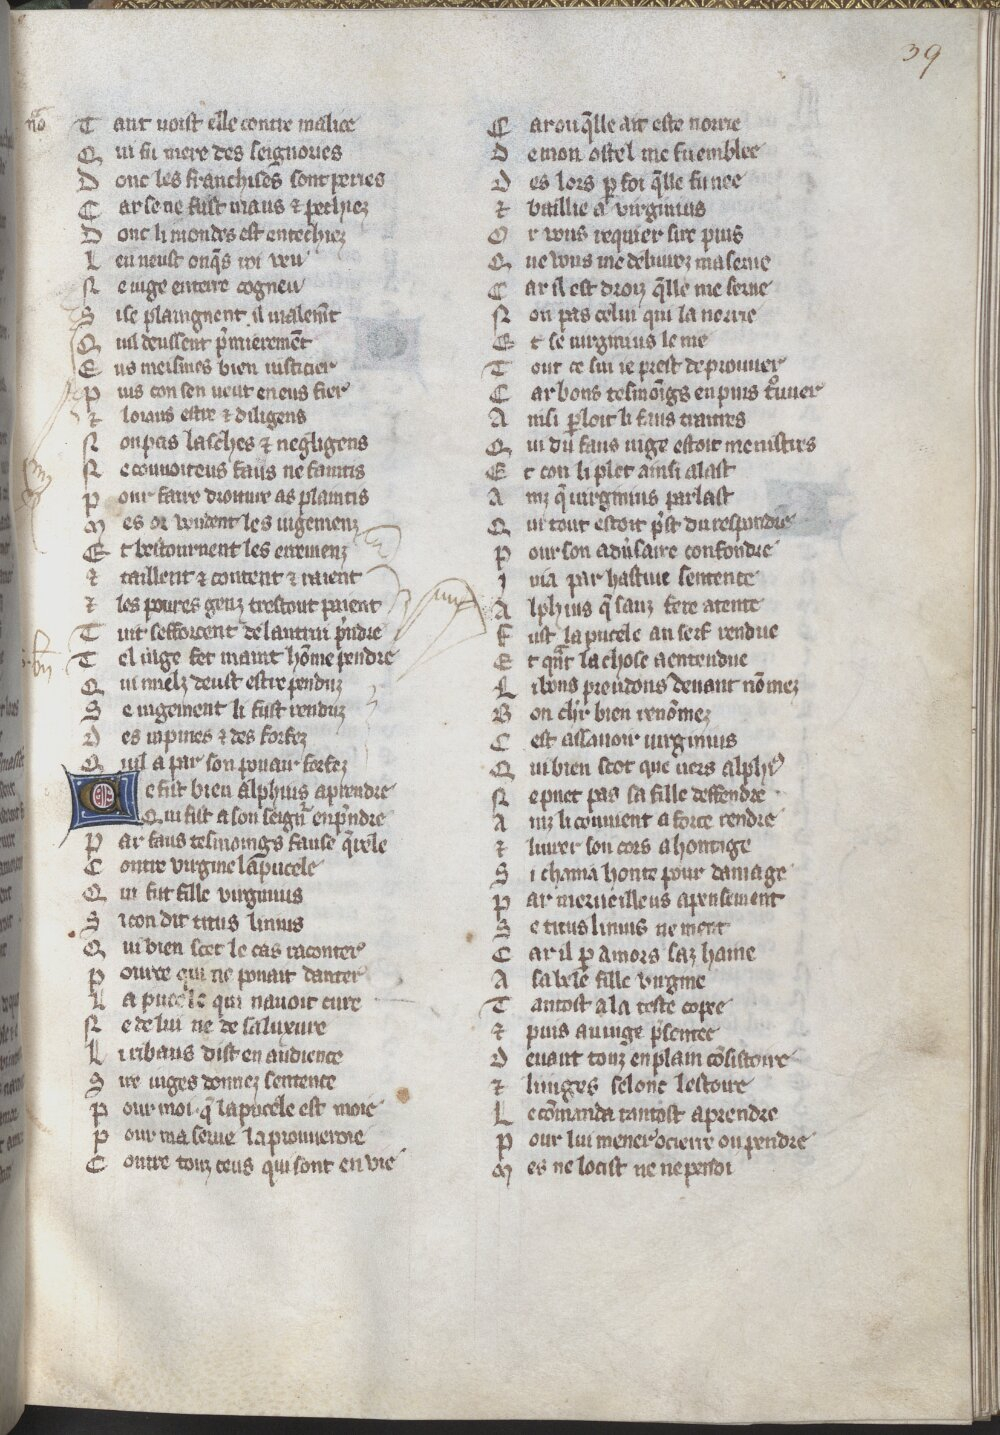 39
no
Tant uoist elle contre malice
Qui fu mere des seignories
Dont les franchises sont peries
Car se ne fust maus ⁊ pechiez
Dont li mondes est entechiez
Len neust onq̄s roi veu
Ne iuge en terre cogneu
Si se plaingnent il malem̄t
Quil deussent p̄mierem̄t
Eus meismes bien iusticier
Puis con sen veut en eus fier
⁊ loiaus estre ⁊ diligens
Non pas lasches ⁊ negligens
Ne couuoiteus faus ne faintis
Pour faire droiture as plaintis
Mes or vendent les iugemenz
Et bestournent les erremenz
⁊ taillent ⁊ content ⁊ raient
⁊ les poures genz trestout paient
Tuit sefforcent de lautrui p̄ndre
Tel iuge fet maint hōme pendre
Qui mielz deust estre penduz
Se iugement li fust renduz
Des rapines ⁊ des forfez
Quil a par son pouair forfez
Ne fist bien alphius aprendre
Qui fist a son seign̄ enp̄ndre
Par faus tesmoings fause q̄rele
Contre virgine la pucele
Qui fut fille virginius
Si con dit titus liuius
Qui bien scet le cas raconter
Pource qui ne pouait danter
La pucele qui nauoit cure
Ne de lui ne de sa luxure
Li ribaus dist en audience
Sire iuges donnez sentence
Pour moi q̄ la pucele est moie
Pour ma serue la prouueroie
Contre touz ceus qui sont en vie
Car ou q̄lle ait este norrie
De mon ostel me fu emblee
Des lors p̱ foi q̄lle fu nee
⁊ baillie a virginius
Or vous requier sire puis
Que vous me deliurez ma serue
Car il est droiz q̄lle me serue
Non pas celui qui la norrie
Et se uirginius le nie
Tout ce sui ie prest de prouuer
Car bons tesmoīgs en puis t͛ouuer
Ainsi p̱loit li faus traitres
Qui du faus iuge estoit menistres
Et con li plet ainsi alast
Ainz q̄ uirginius parlast
Qui tout estoit p̄st du respondre
Pour son adu͛saire confondre
Iuia par hastiue sentence
Alphius q̄ sanz fere atente
Fust la pucele au serf rendue
Et qn̄t la chose a entendue
Li bons preudons deuant nōmez
Bon chl̄r bien renōmez
Cest assauoir uirginius
Qui bien scot que uers alphi⁹
Ne puet pas sa fille deffendre
Ainz li couuient a force rendre
⁊ liurer son cors a hontage
Si chania honte pour damage
Par merueilleus apensement
Se titus liuius ne ment
Car il p̱ amors saz haine
A sa bele fille virgine
Tantost a la teste copee
⁊ puis au iuge p̄sentee
Deuant touz en plain cōsistoire
⁊ li iuges selonc lestoire
Le cōmanda tantost a prendre
Pour lui mener ocierre ou pendre
Mes ne locist ne ne pendi